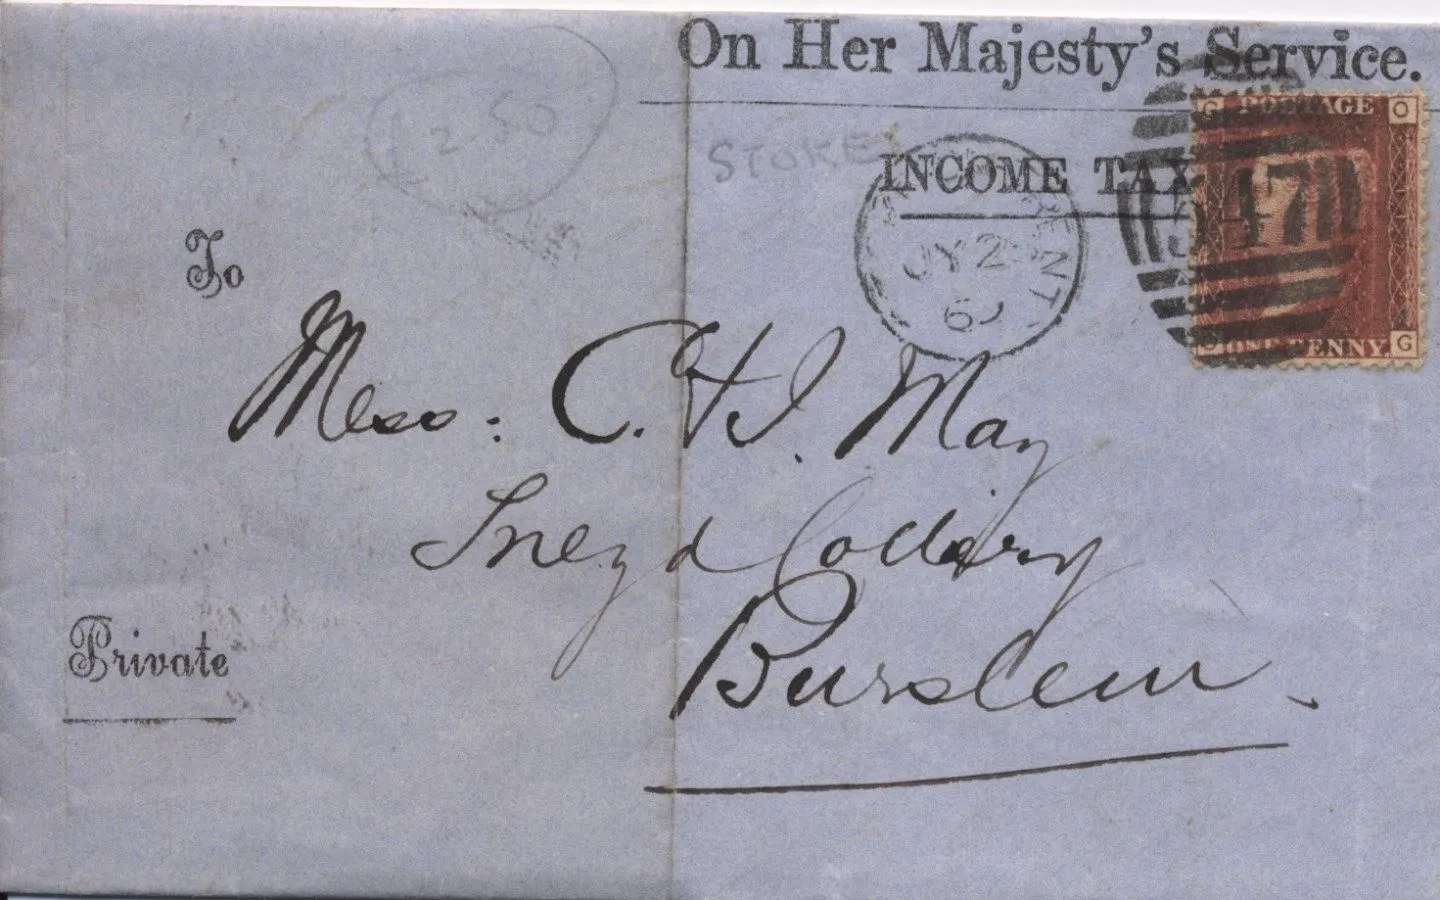 On Her Majesty's Service.
INCOME TAX
G POSTAGE O
ONE PENNY. G
547
ENT
JY 2
6
2.50
STOKE
To
Mess: C. & J. May
Sneyd Colliery
Burslem
Private